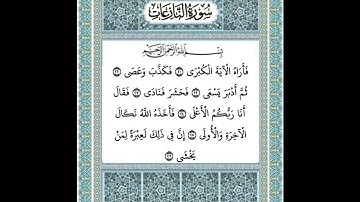 سُورَةُ النَّازِعَاتِ
بِسْمِ اللَّهِ الرَّحْمَٰنِ الرَّحِيمِ
فَأَرَاهُ الْآيَةَ الْكُبْرَى ۝ فَكَذَّبَ وَعَصَى ۝
ثُمَّ أَدْبَرَ يَسْعَى ۝ فَحَشَرَ فَنَادَى ۝ فَقَالَ
أَنَا رَبُّكُمُ الْأَعْلَى ۝ فَأَخَذَهُ اللَّهُ نَكَالَ
الْآخِرَةِ وَالْأُولَى ۝ إِنَّ فِي ذَلِكَ لَعِبْرَةً لِمَنْ
يَخْشَى ۝